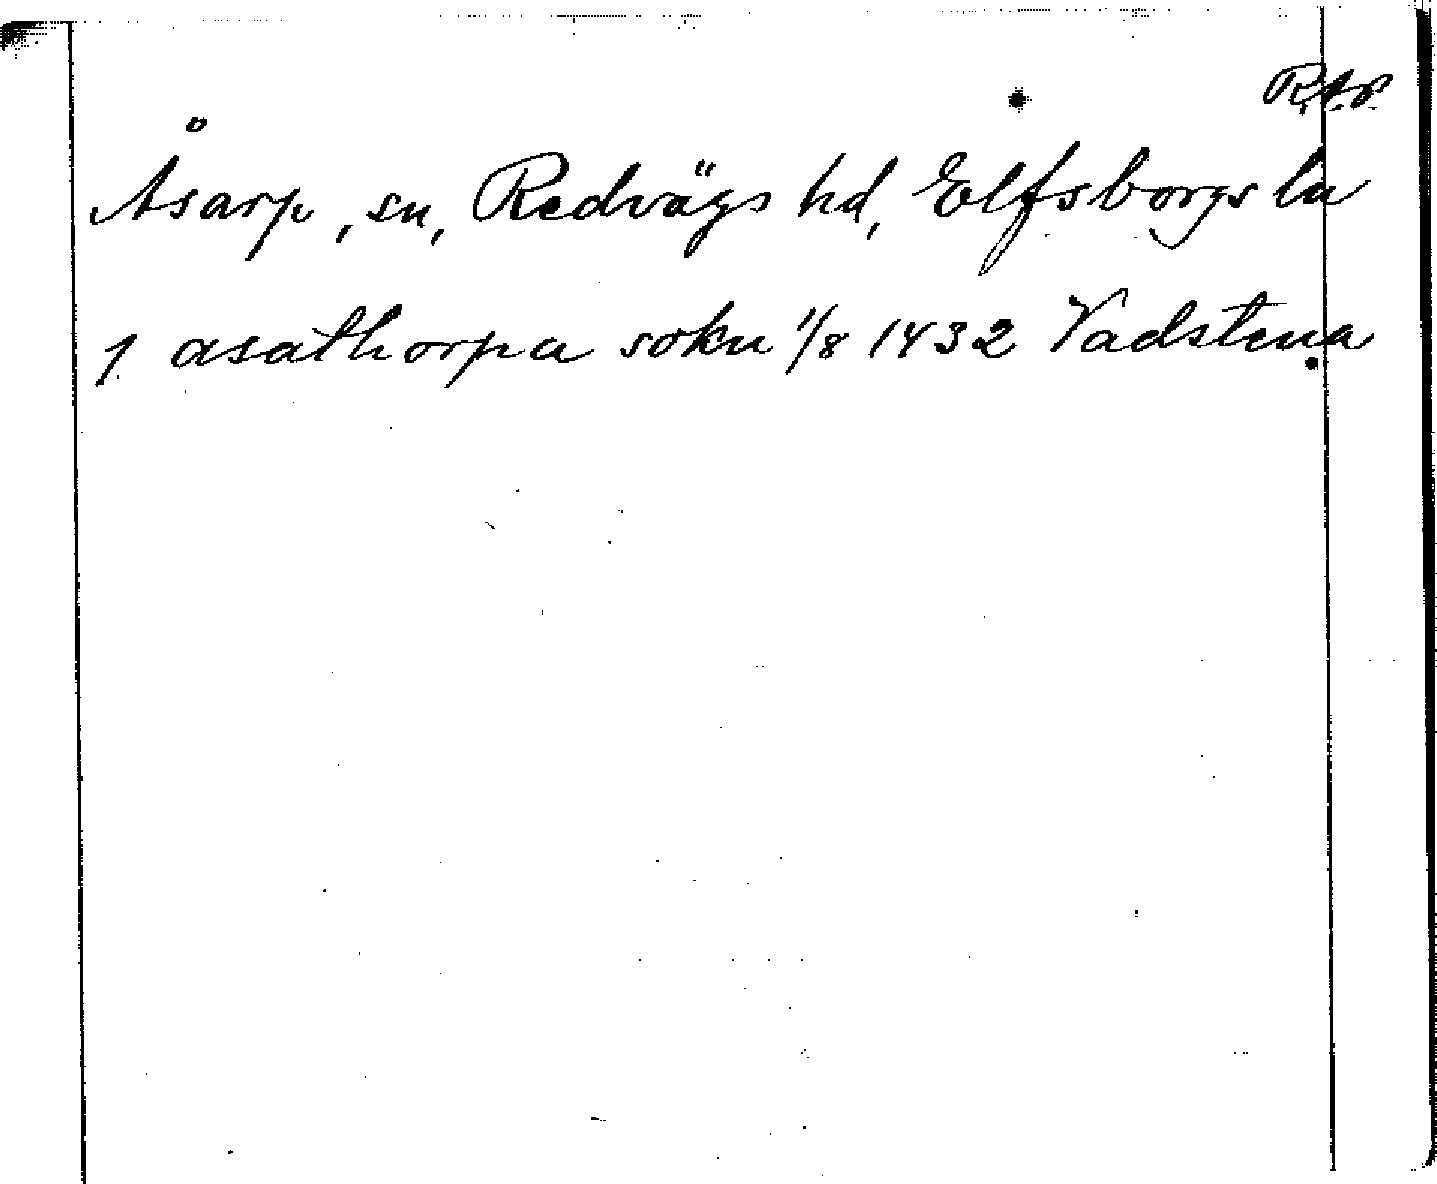 R.A.P.
Åsarp, sn, Redvägs hd, Elfsborgs län
J asathorpa sokn 1/8 1432 Vadstena